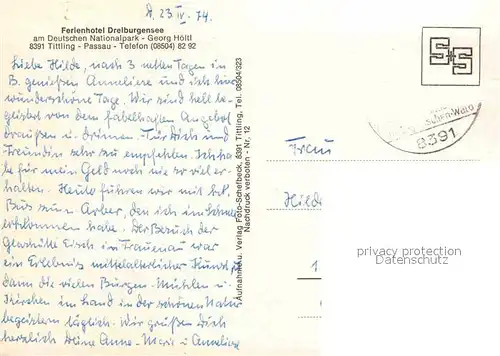 d. 23. IV. 74.
Ferienhotel Dreiburgensee
am Deutschen Nationalpark - Georg Höltl
8391 Tittling - Passau - Telefon (08504) 82 92
Liebe Hilde, nach 3 netten Tagen in
B. genießen Anneliere und ich hier
wunderschöne Tage. Wir sind hell be-
geistert von dem fabelhaften Angebot
draußen u. drinnen. Für Dich und
Freundin sehr zu empfehlen. Ich ha-
be für mein Geld noch nie so viel er-
halten. Heute fuhren wir mit
Bus zum Arber, den ich im
erklommen habe. Der Besuch der
Glashütte Eisch in Frauenau war
ein Erlebnis mittelalterlicher Kunst
dann die vielen Burgen - Mühlen u.
Kirchen in der schönen Natur
begeistern täglich. Wir grüßen Dich
herzlich Deine Anne-Marie u. Anneliere
Aufnahme u. Verlag Foto-Schefbeck, 8391 Tittling, Tel. 08504/323
Nachdruck verboten - Nr. 12
8391
Frau
Hilde
privacy protection
Datenschutz